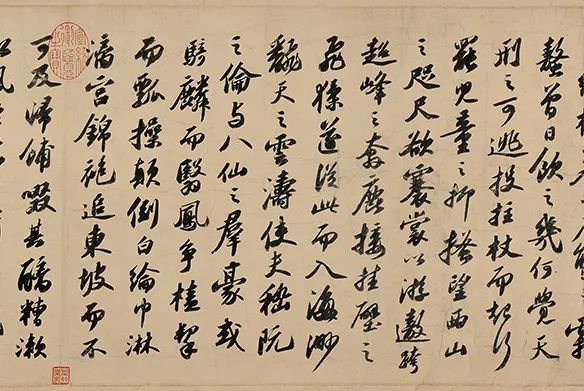 螯曾日飲之幾何覺天
刑之可逃投拄杖而起行
罷兒童之抑搔望西山
之咫尺欲褰裳以游遨跨
超峰之奔鹿接挂壁之
飛猱遂從此而入海渺
飜天之雲濤使夫嵇阮
之倫與八仙之羣豪或
騎麟而翳鳳爭榼挈
而瓢操顛倒白綸巾淋
漓宮錦袍追東坡而不
可及歸餔歠其醨糟漱
松風